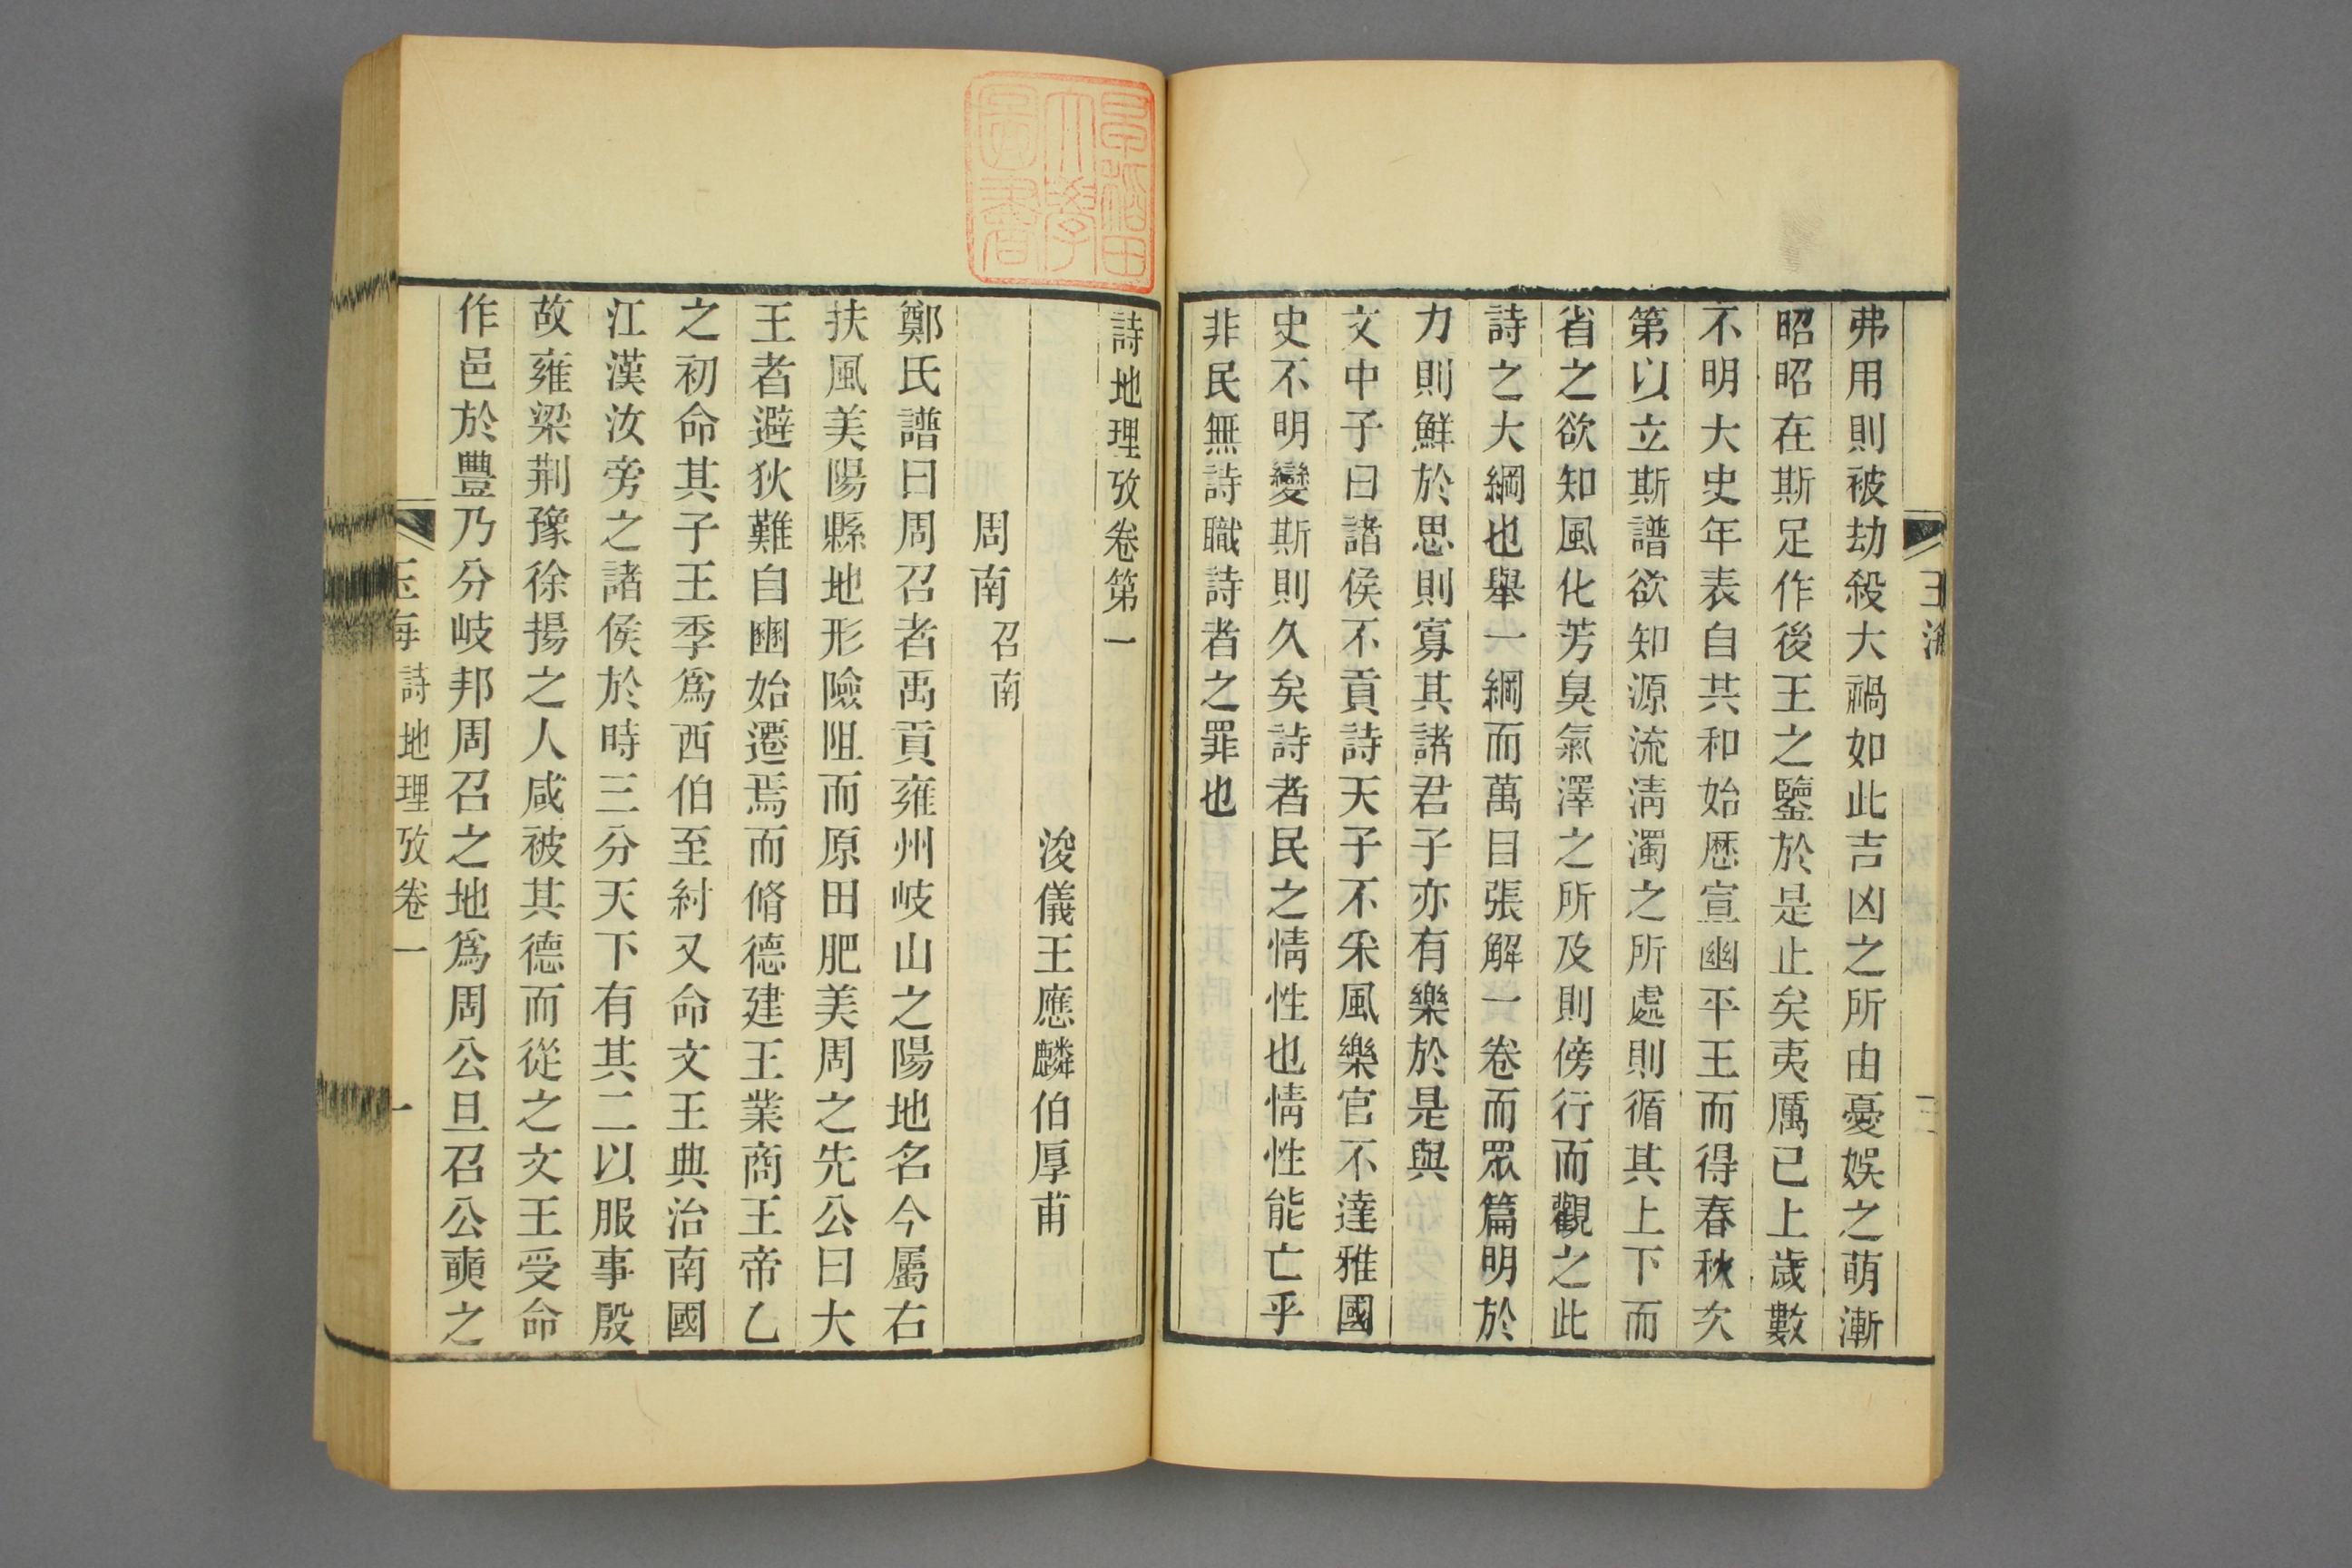 弗用則被劫殺大禍如此吉凶之所由憂娛之萌漸
昭昭在斯足作後王之鑒於是止矣夷厲已上歲數
不明大史年表自共和始歷宣幽平王而得春秋次
第以立斯譜欲知源流淸濁之所處則循其上下而
省之欲知風化芳臭氣澤之所及則傍行而觀之此
詩之大綱也舉一綱而萬目張解一卷而眾篇明於
力則鮮於思則寡其諸君子亦有樂於是與
文中子曰諸侯不貢詩天子不采風樂官不達雅國
史不明變斯則久矣詩者民之情性也情性能亡乎
非民無詩職詩者之罪也
早稻田
大學
圖書
詩地理攷卷第一
浚儀王應麟伯厚甫
周南 召南
鄭氏譜曰周召者禹貢雍州岐山之陽地名今屬右
扶風美陽縣地形險阻而原田肥美周之先公曰大
王者避狄難自豳始遷焉而脩德建王業商王帝乙
之初命其子王季爲西伯至紂又命文王典治南國
江漢汝旁之諸侯於時三分天下有其二以服事殷
故雍梁荆豫徐揚之人咸被其德而從之文王受命
作邑於豐乃分岐邦周召之地爲周公旦召公奭之
玉海 詩地理攷卷一 一